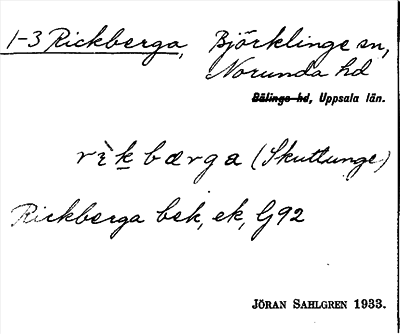 1-3 Rickberga, Björklinge sn,
Norunda hd
Bälinge hd, Uppsala län.
rìkbærga (Skuttunge)
Rickberga bsk, ek, G92
JÖRAN SAHLGREN 1933.